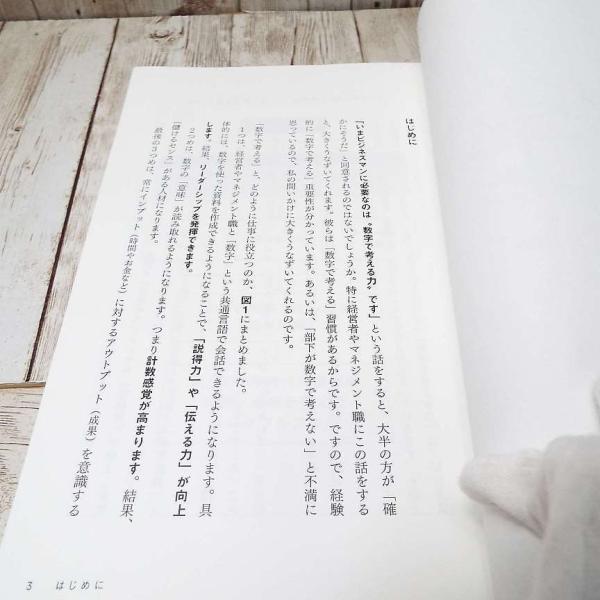 はじめに
「いまビジネスマンに必要なのは〝数字で考える力〟です」という話をすると、大半の方が「確
かにそうだ」と同意されるのではないでしょうか。特に経営者やマネジメント職にこの話をする
と、大きくうなずいてくれます。彼らは「数字で考える」習慣があるからです。ですので、経験
的に「数字で考える」重要性が分かっています。あるいは、「部下が数字で考えない」と不満に
思っているので、私の問いかけに大きくうなずいてくれるのです。
「数字で考える」と、どのように仕事に役立つのか、図1にまとめました。
1つは、経営者やマネジメント職と「数字」という共通言語で会話できるようになります。具
体的には、数字を使った資料を作成できるようになることで、「説得力」や「伝える力」が向上
します。結果、リーダーシップを発揮できます。
2つめは、数字の「意味」が読み取れるようになります。つまり計数感覚が高まります。結果、
「儲けるセンス」がある人材になります。
最後の3つめは、常にインプット（時間やお金など）に対するアウトプット（成果）を意識する
3 はじめに